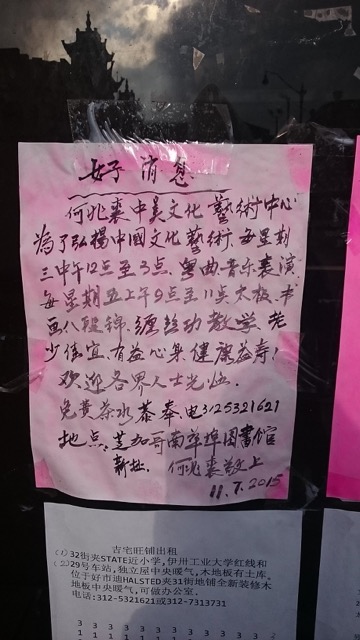 好消息
何兆裘中美文化藝術中心
為了弘揚中國文化藝術.每星期
三中午12点至3点.粵曲音乐表演
每星期五上午9点至11点太极.书
画八段锦.缠丝功教学.老
少佳宜.有益心身健康益寿!
欢迎各界人士光临.
免費茶水恭奉电3125321621
地点:芝加哥南華埠图書館
新址. 何兆裘敬上
11.7.2015
吉宅旺铺出租
(1)32街夹STATE近小学,伊州工业大学红线和
(2)29号车站,独立屋中央暖气,木地板有土库.
位于好市迪HALSTED夹31街地铺全新装修木
地板中央暖气,可做办公室.
电话:312-5321621或312-7313731
3 3 3 3 3 3 3 3